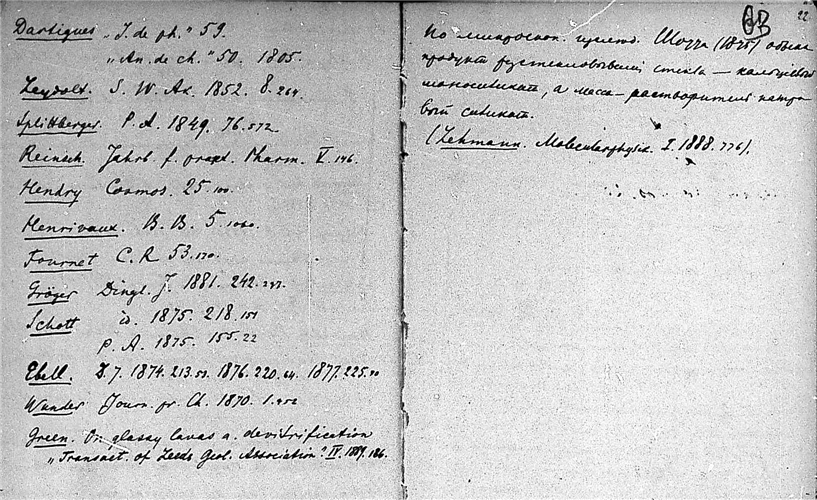 Dartigues „J. de ph.“ 59.
„An. de ch.“ 50. 1805.
Leydolt. S. W. Ak. 1852. 8. 264.
Splittberger. P. A. 1849. 76. 572
Reinsch. Jahrb. f. prapt. Pharm. V. 146.
Hendry Cosmos. 25. 100.
Henrivaux. B. B. 5. 1060.
Fournet C. R 53.
Gröger Dingl. J. 1881. 242.
Schott id. 1875. 218. 151
P. A. 1875. 155. 22
Ebell. D. J. 1874. 213. 53. 1876. 220. 64. 1877. 225.
Wunder Journ. pr. Ch. 1870. 1. 452
Green. On glassy lavas a. devitrification
„Transact. of Leeds Geol. Association.“ IV. 1889. 186.
22
По микроскоп. изслед. Шотта (1875)
продукт разстекловывания стекла — кальциевый
моносиликат, а масса — растворитель натро
вый силикат.
(Lehmann. Molecularphysik. I. 1888. 776).